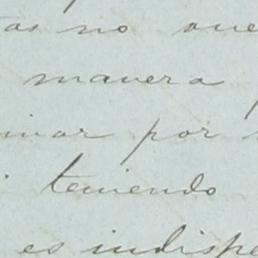 tas no que
manera
inar por
teniendo
es indispe